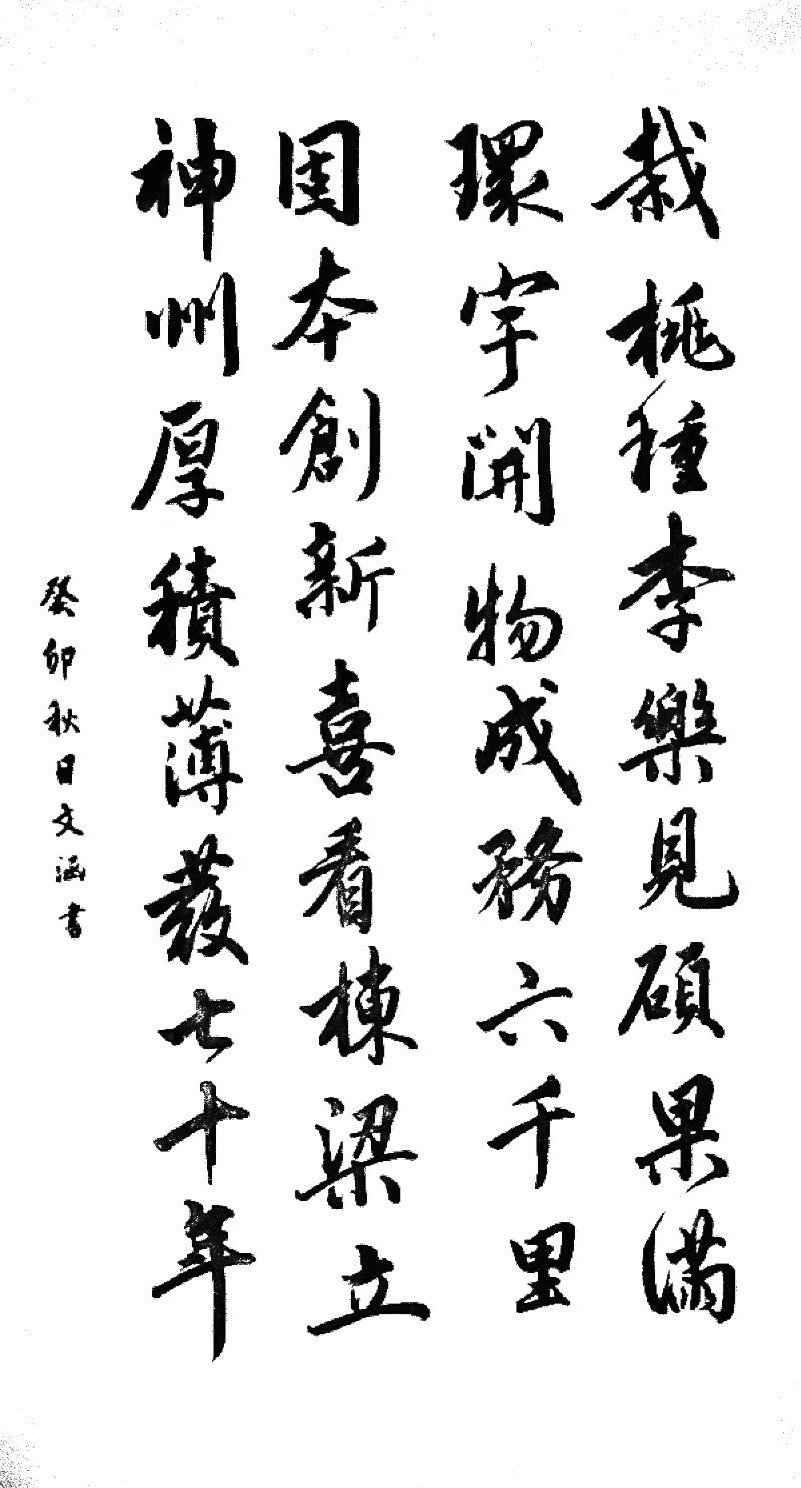 栽桃種李樂見碩果滿
環宇開物成務六千里
固本創新喜看棟梁立
神州厚積薄發七十年
癸卯秋日文涵書